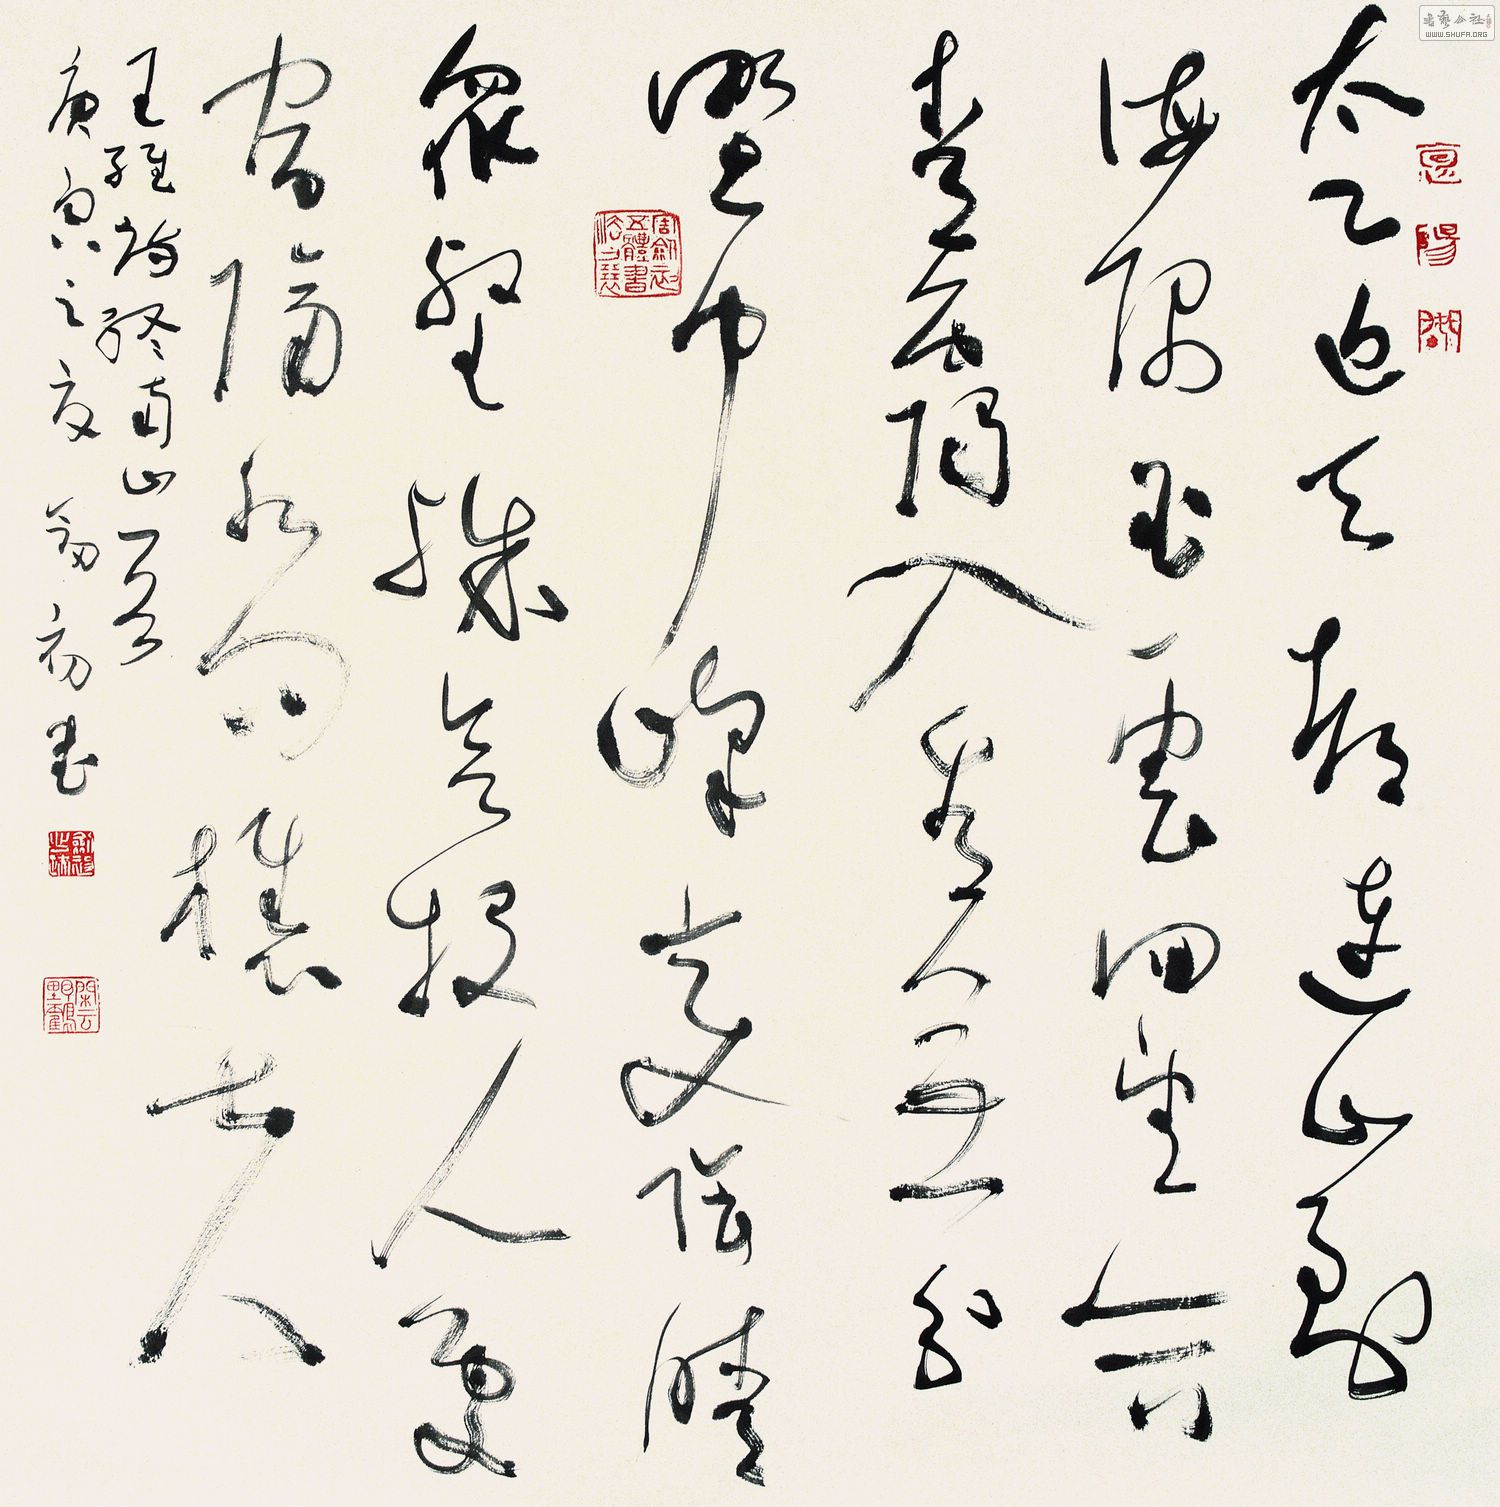 太乙近天都連山到
海隅白雲回望合
青靄入看無分
野中峰變陰晴
眾壑殊欲投人處
宿隔水問樵夫
王維詩終南山一首
庚寅之夏 劍初書
書藝公社
WWW.SHUFA.ORG